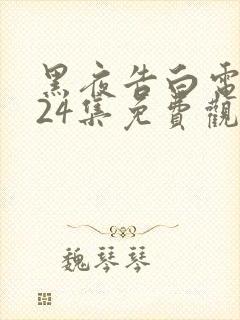 黑夜告白電
24集免費觀
魏琴琴